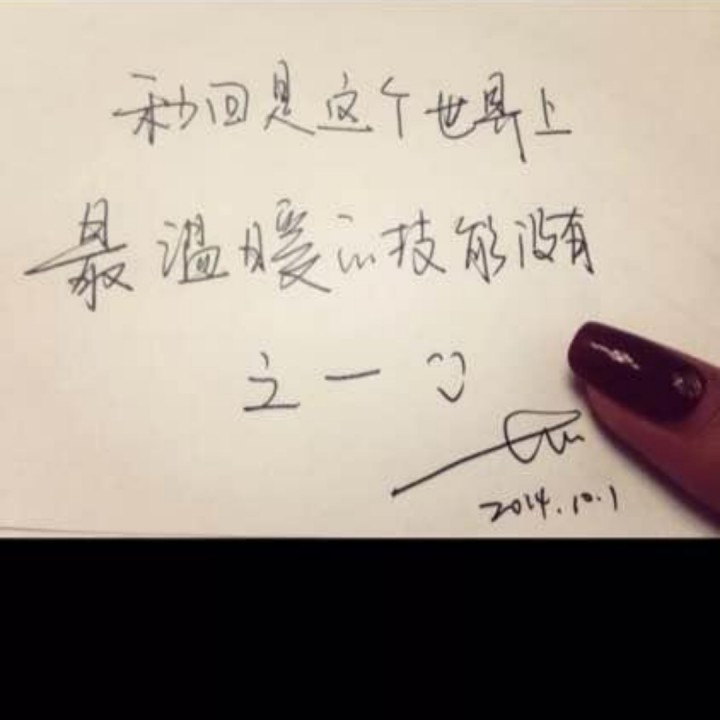 秒回是这个世界上
最温暖的技能没有
之一
2014.10.1